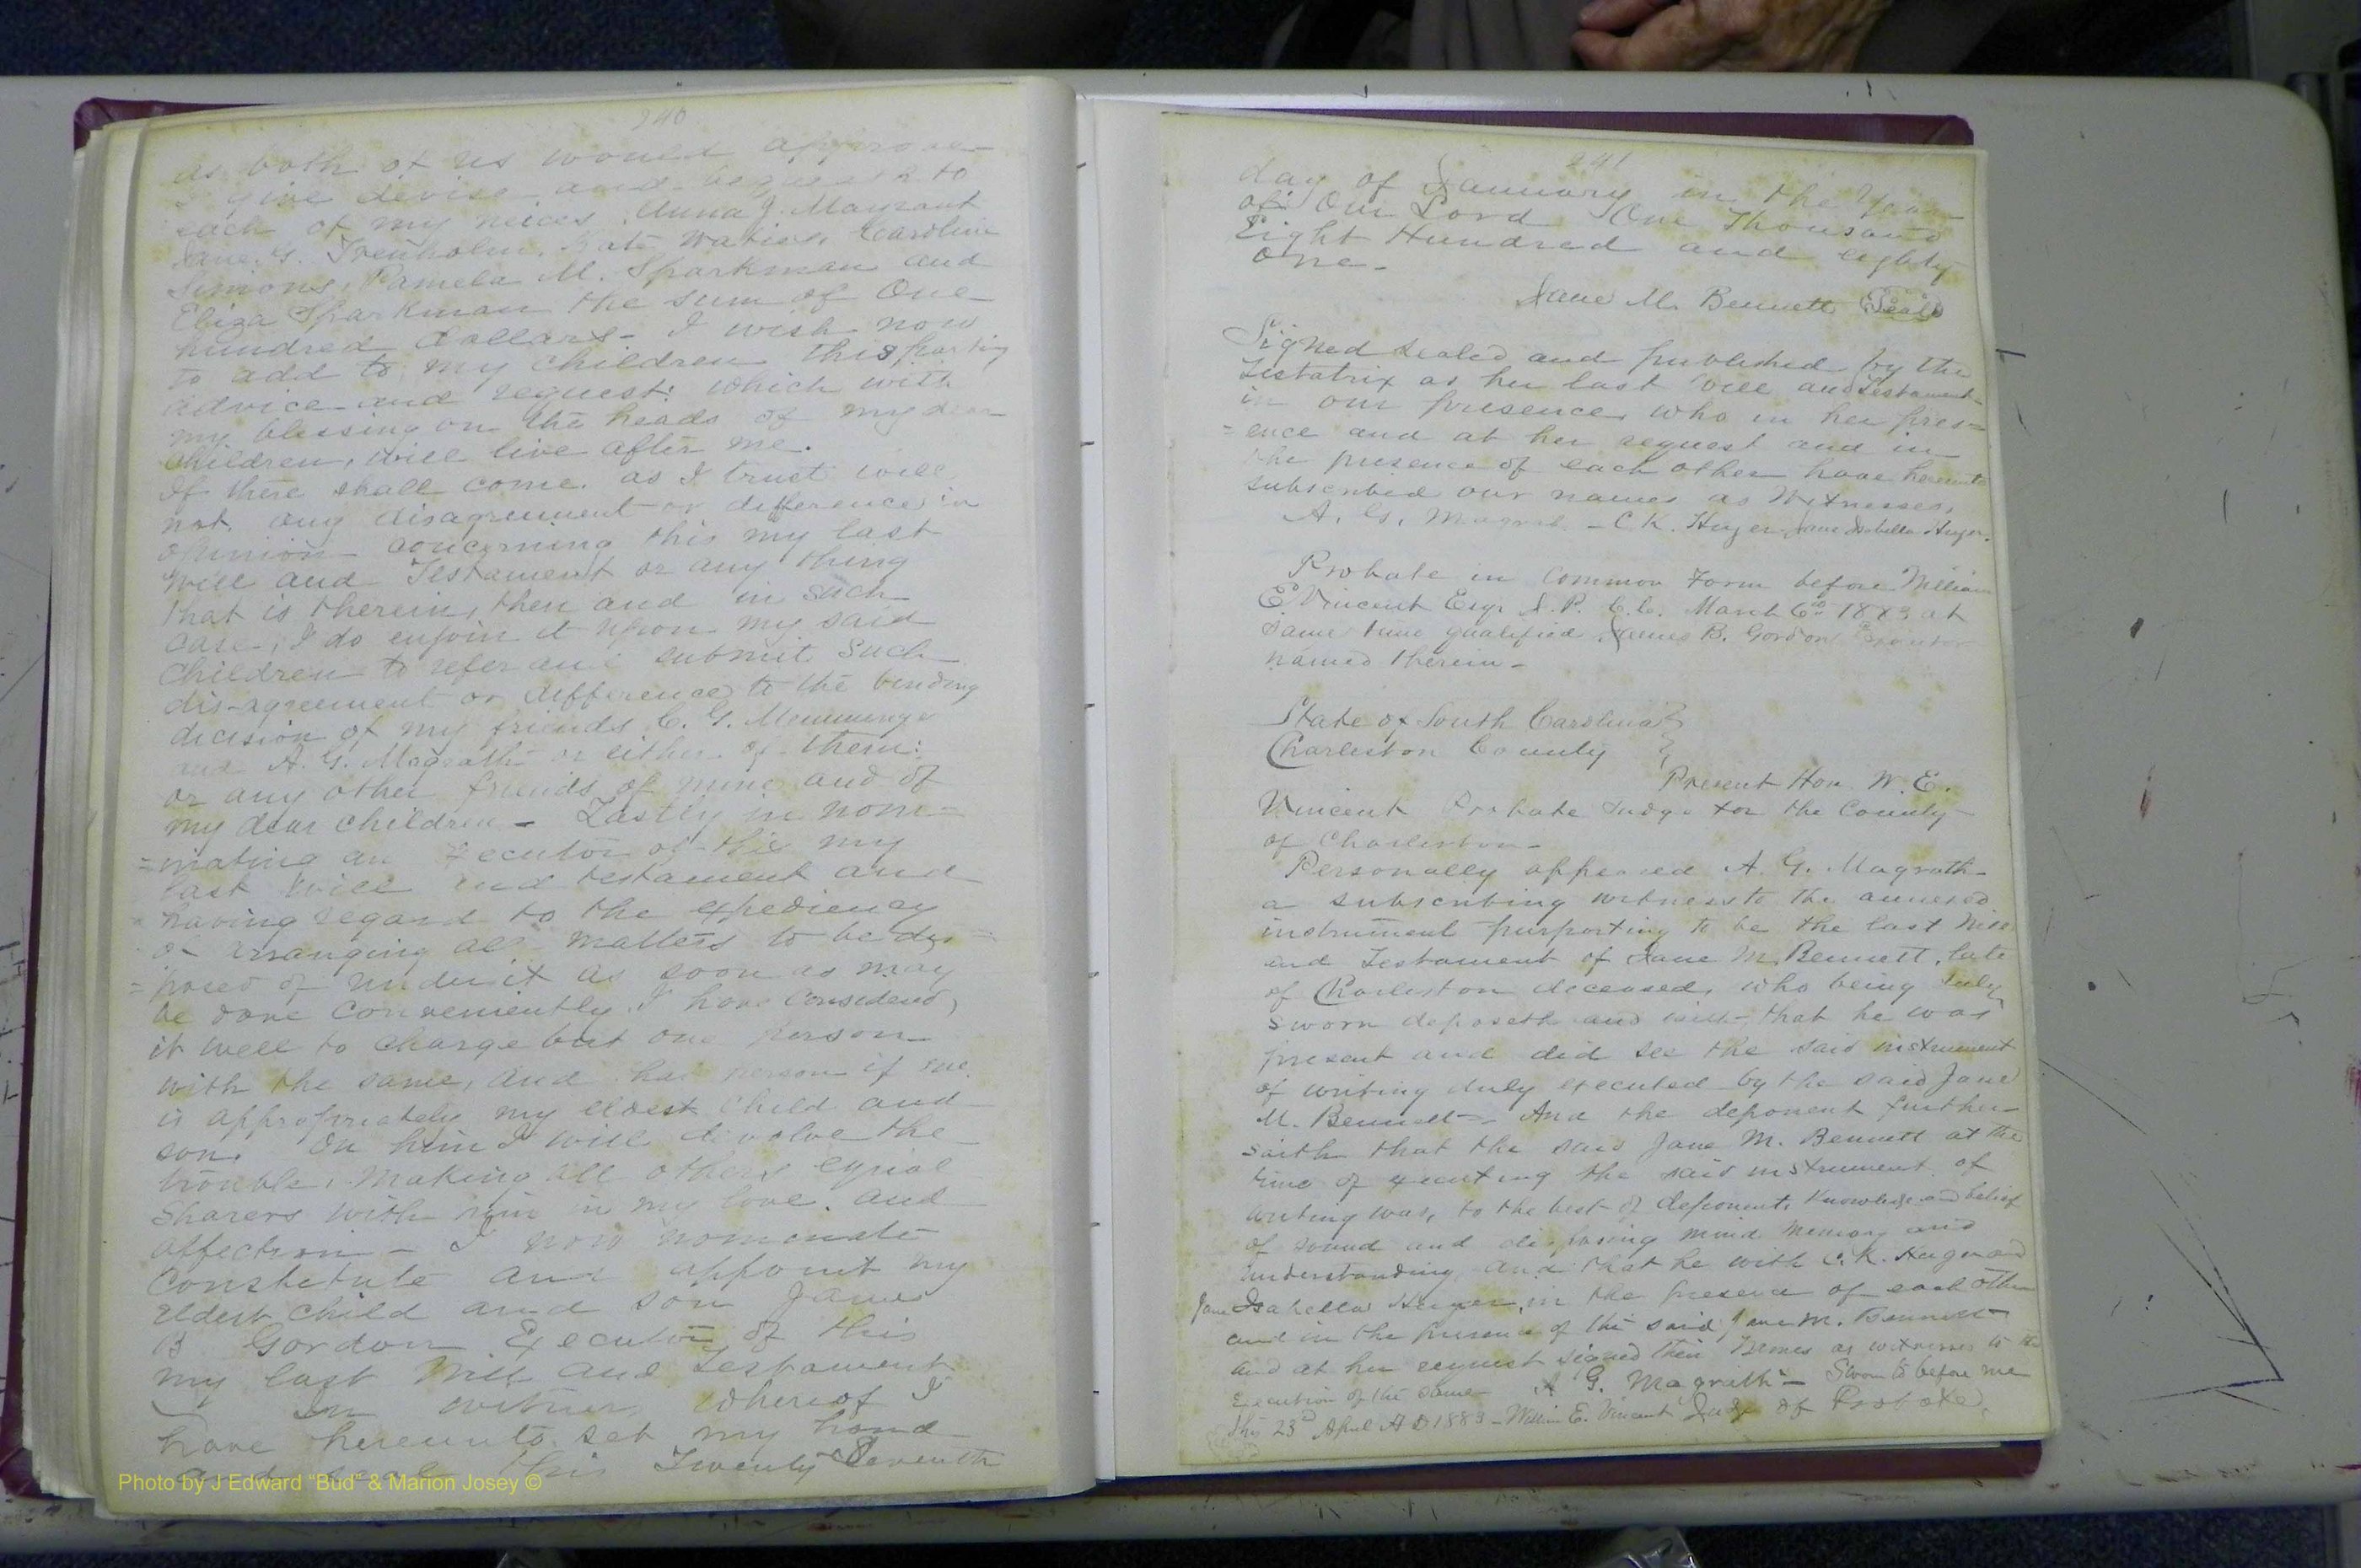 240
as both of us would approve
I give devise and bequeath to
each of my neices Anna J. Mayrant
Jane G. Trenholm, Kate Waties, Caroline
Simons, Pamela M. Sparkman and
Eliza Sparkman the sum of One
hundred dollars - I wish now
to add to my children this parting
advice and request: which with
my blessing on the heads of my dear
Children, will live after me.
If there shall come, as I trust will
not, any disagreement or difference in
opinion concerning this my last
Will and Testament or any thing
that is therein, then and in such
case, I do enjoin it upon my said
Children to refer and submit such
dis-agreement or difference to the binding
decision of my friends C. G. Memminger
and A. G. Magrath or either of them:
or any other friends of mine and of
my dear children - Lastly in nom=
=inating an Executor of this my
last Will and testament and
having regard to the expediency
of arranging all matters to be dis=
=posed of under it as soon as may
be done conveniently, I have considered
it well to charge but one person
with the same, and that person if one
is appropriately my eldest child and
son. On him I will devolve the
trouble, making all others equal
Sharers with him in my love and
affection - I now nominate
Constitute and appoint my
Eldest Child and son James
B Gordon Executor of this
my last Will and Testament
In witness whereof I
have hereunto set my hand
and seal this Twenty Seventh
241
day of January in the Year
of Our Lord One Thousand
Eight Hundred and eighty
One -
Jane M. Bennett (Seal)
Signed sealed and published by the
Testatrix as her last Will and Testament
in our presence, who in her pres=
=ence and at her request and in
the presence of each other have hereunto
subscribed our names as Witnesses,
A. G. Magrath - C. K. Huger Jane Isabella Huger.
Probate in Common Form before William
E. Vincent Esqr J. P. C. C. March 6th 1883 at
same time qualified James B. Gordon Executor
named therein -
State of South Carolina }
Charleston County }
Present Hon. W. E.
Vincent Probate Judge for the County
of Charleston -
Personally appeared A. G. Magrath
a subscribing witness to the annexed
instrument purporting to be the last Will
and Testament of Jane M. Bennett, late
of Charleston deceased, who being duly
sworn deposeth and saith that he was
present and did see the said instrument
of writing duly executed by the said Jane
M. Bennett - And the deponent further
saith that the said Jane M. Bennett at the
time of executing the said instrument of
writing was, to the best of deponents Knowledge and belief
of sound and disposing mind memory and
understanding and that he with C. K. Huger and
Jane Isabella Huger, in the presence of each other
and in the presence of the said Jane M. Bennett
and at her request signed their Names as witnesses to the
Execution of the same - A G. Magrath - Sworn to before me
this 23d April A D 1883 - William E. Vincent Judge of Probate.
Photo by J Edward "Bud" & Marion Josey ©